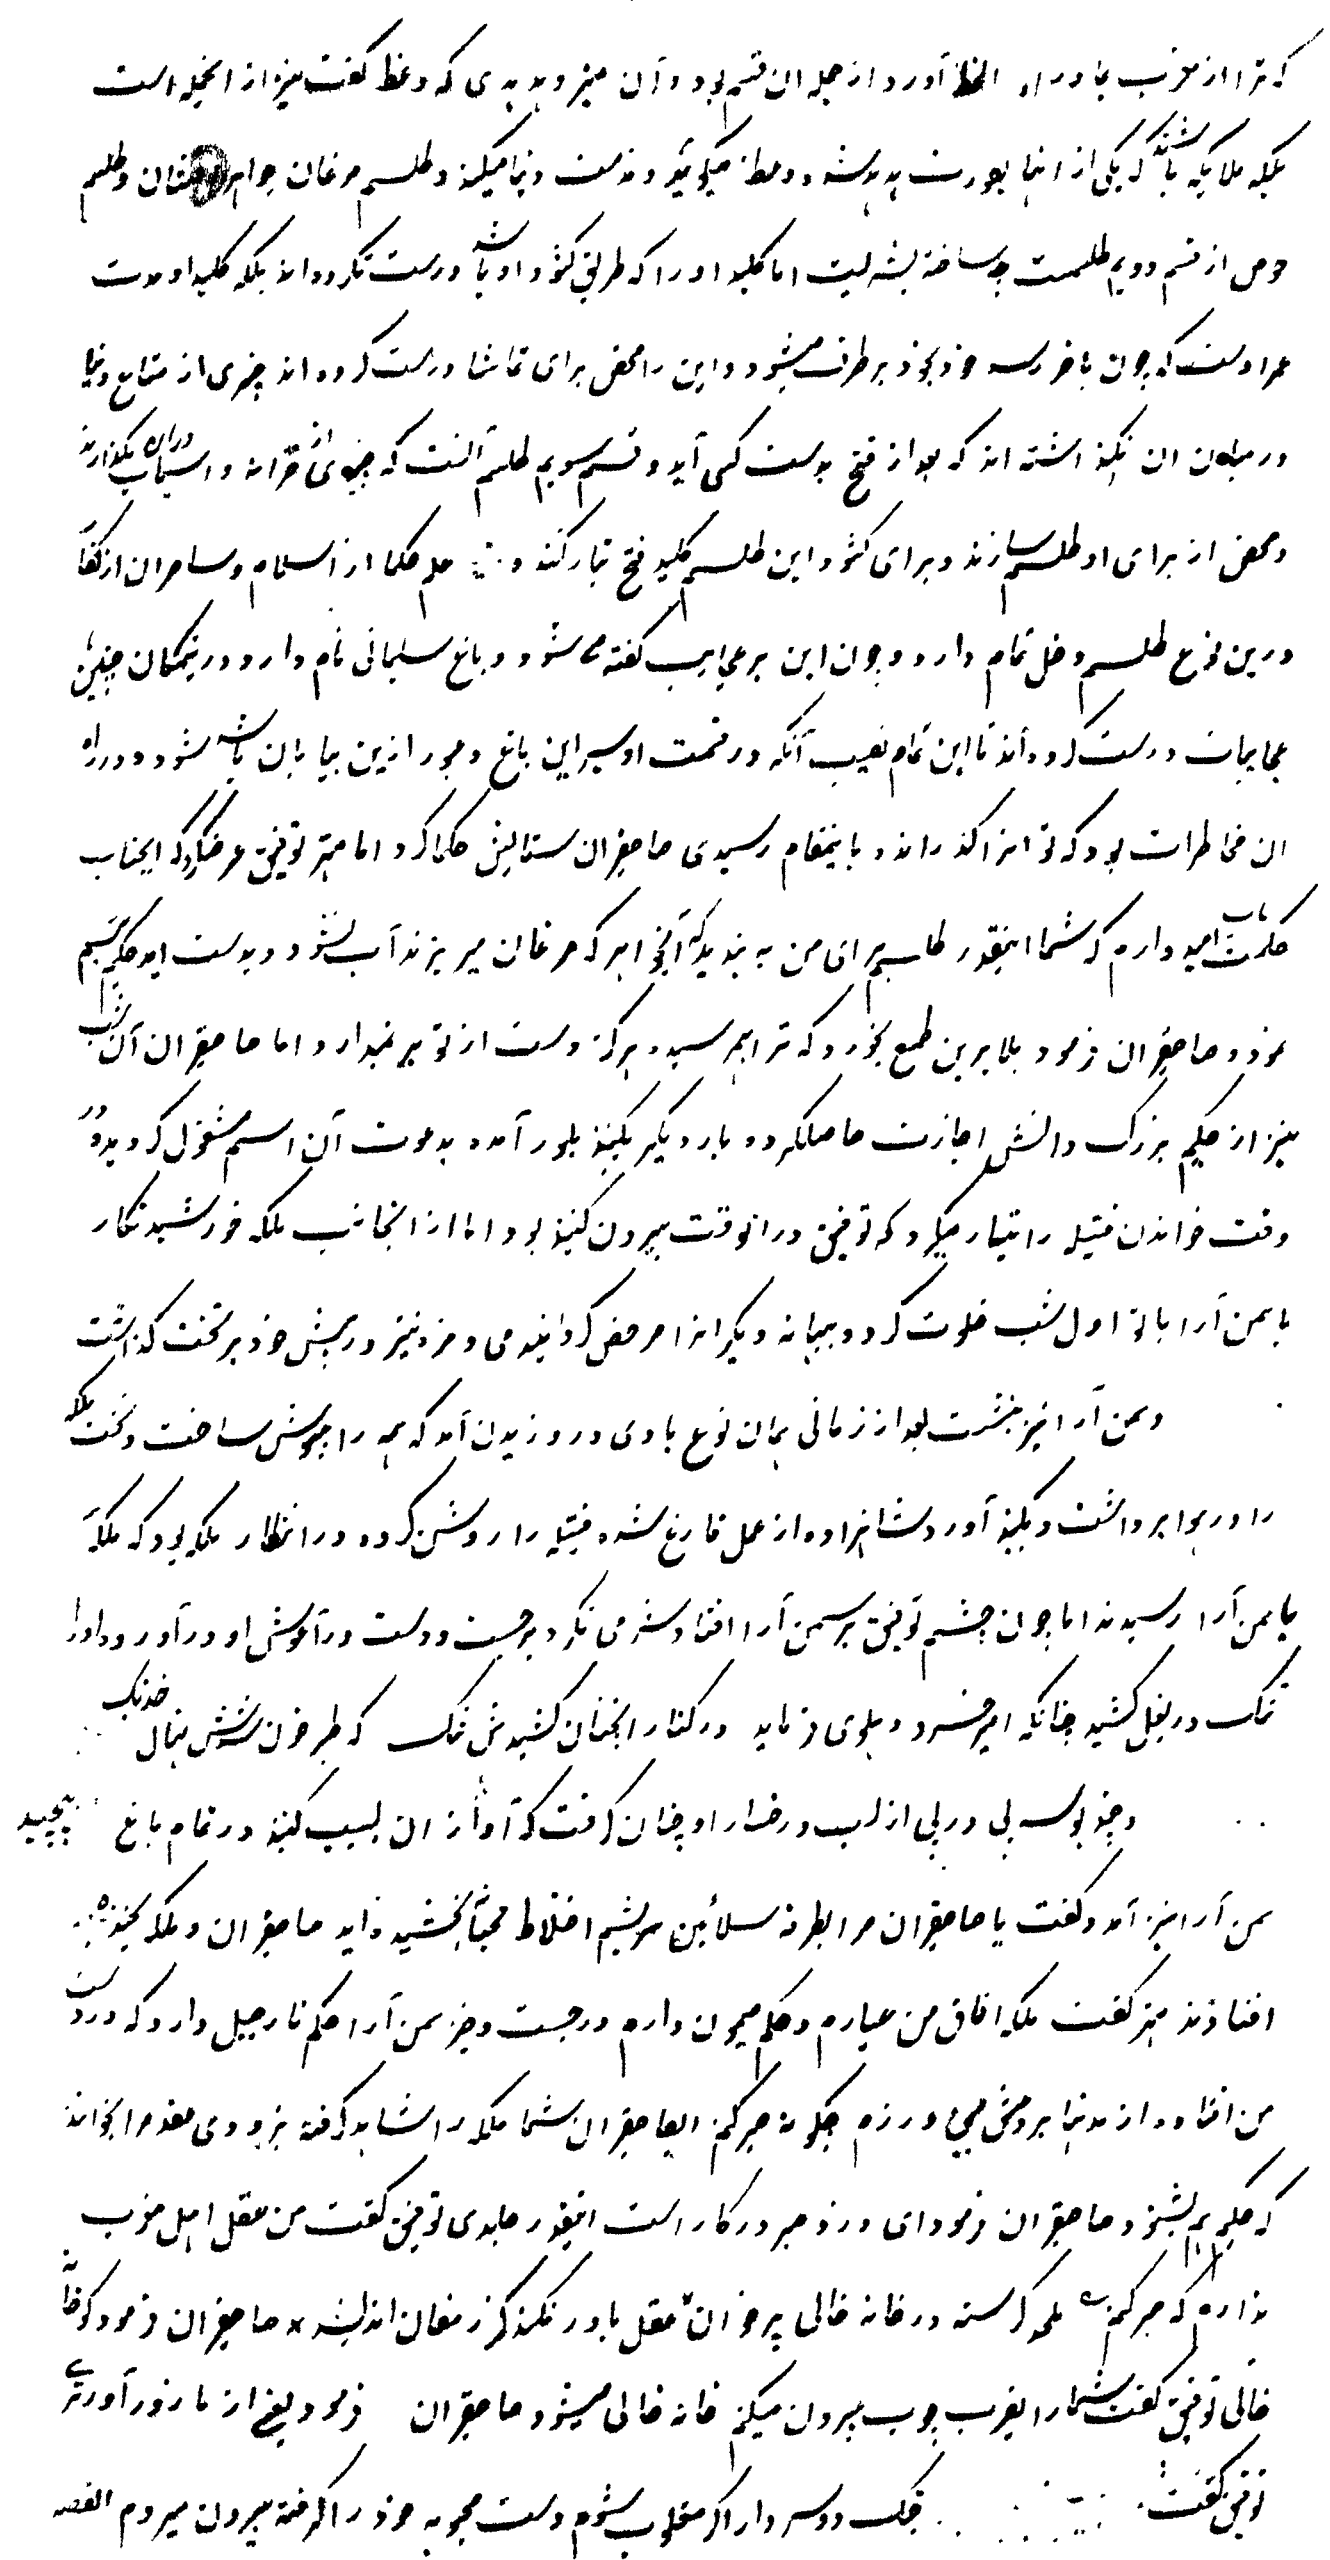 که ترا از مغرب بماوراء النظر آورد از جمله ان قسم بود و آن میز و هدهدی که وعظ کفت نیز از انجمله است
بلکه ملایکه باشند که یکی از اینها بصورت هدهد شود و وعظ میکوید و مذمت دنیا میکند و طلسم مرغان جواهر و طلسم
حوض از قسم دویم طلسمست که ساخته بشر نیست اما کلید او را که طریق کشود او باشد درست نکرده اند بلکه کلید او مدت
عمر اوست که چون باخر رسد خود بخود برطرف میشود و این را محض برای تماشا درست کرده اند چیزی از متاع دنیا
در میان ان نیز نکذاشته اند که بعد از فتح بدست کسی آید و قسم سویم طلسم آنست که چیزی از خزانه و اسباب دران بکذارند
و محض از برای او طلسم سازند و برای کشود این طلسم کلید فتح تیار کنند و علم حکما از اسلام و ساحران از کفار
درین نوع طلسم دخل تمام دارد و چون این بر عجایب کفته میشود و باغ سلیمانی نام دارد درینمکان چنین
عجایبات درست کرده اند تا این تمام نصیب آنکه در قسمت او سیر این باغ و عبور ازین بیابان باشد شود و در راه
ان مخاطرات بود که تو انرا کذرانده باینمقام رسیدی صاحبقران ستایش حکما کرد اما مهتر توفیق عرض کرد که ایجناب
حکمت ماب امیدوارم که شما اینقدر طلسم برای من به بندید که آنجواهر که مرغان میریزند آب نشود و بدست اید حکیم تبسم
نمود و صاحبقران فرمود بلا برین طمع بخورد که ترا بهم رسیده هرکز دست از تو بر نمیدارد اما صاحبقران آن شب
نیز از حکیم بزرک دانش اجازت حاصلکرده بار دیکر بکنبد بلور آمده بدعوت آن اسم مشغول کردید و در
وقت خواندن فتیله را تیار میکرد که توفیق درانوقت بیرون کنبد بود اما از انجانب ملکه خورشید نکار
با سمن آرا بانو اول شب خلوت کرد و ببهانه دیکرانرا مرخص کردانید می و مزه نیز در پیش خود بر تخت کذاشت
و سمن آرا نیز بنشست بعد از زمانی بهمان نوع بادی در وزیدن آمد که همه را بیهوش ساخت و تخت ملکه
را در هوا برداشت و بکنبد آورد شاهزاده از عمل فارغ شده فتیله را روشن کرده در انتظار ملکه بود که ملکه
با سمن آرا رسیدند اما چون چشم توفیق بر سمن آرا افتاد شرمی نکرد برجست و دست در آغوش او درآورد و او را
تنک در بغل کشید چنانکه امیر خسرو دهلوی فرماید در کنار انچنان کشیدش تنک که طبر خون شدش نهال خدنک
و چند بوسه پی در پی از لب و رخسار او چنان کرفت که آواز ان بسبب کنبد در تمام باغ پیچید
سمن آرا نیز آمد و کفت یا صاحبقران مرا بطرفه اختلاط صاحبقران و ملکه بخنده
افتادند مهتر کفت ملکه افاق من عیارم و حکم میمون دارم در جست و خیز سمن آرا حکم نارجیل دارد که در دست
من افتاده از مدتها برو عشق می ورزم چکونه صبر کنم ایصاحبقران شما ملکه را شاید کرفته بزودی عقد مرا بخوانند
که حکیم هم بشنود صاحبقران فرمود ای دزد صبر در کار است اینقدر جلدی توفیق کفت من عقل اهل مغرب
ندارم که صبر کنم ملحد کرسنه در خانه خالی پر خوان عقل باور نکند کز رمضان اندیشد صاحبقران فرمود کو خانه
خالی توفیق کفت شما را بضرب چوب بیرون میکنم خانه خالی میشود صاحبقران فرمود یعنی از ما زور آور تری
توفیق کفت جنک دو سر دارد اکر مغلوب شوم دست محبوبه خود را کرفته بیرون میروم القصه